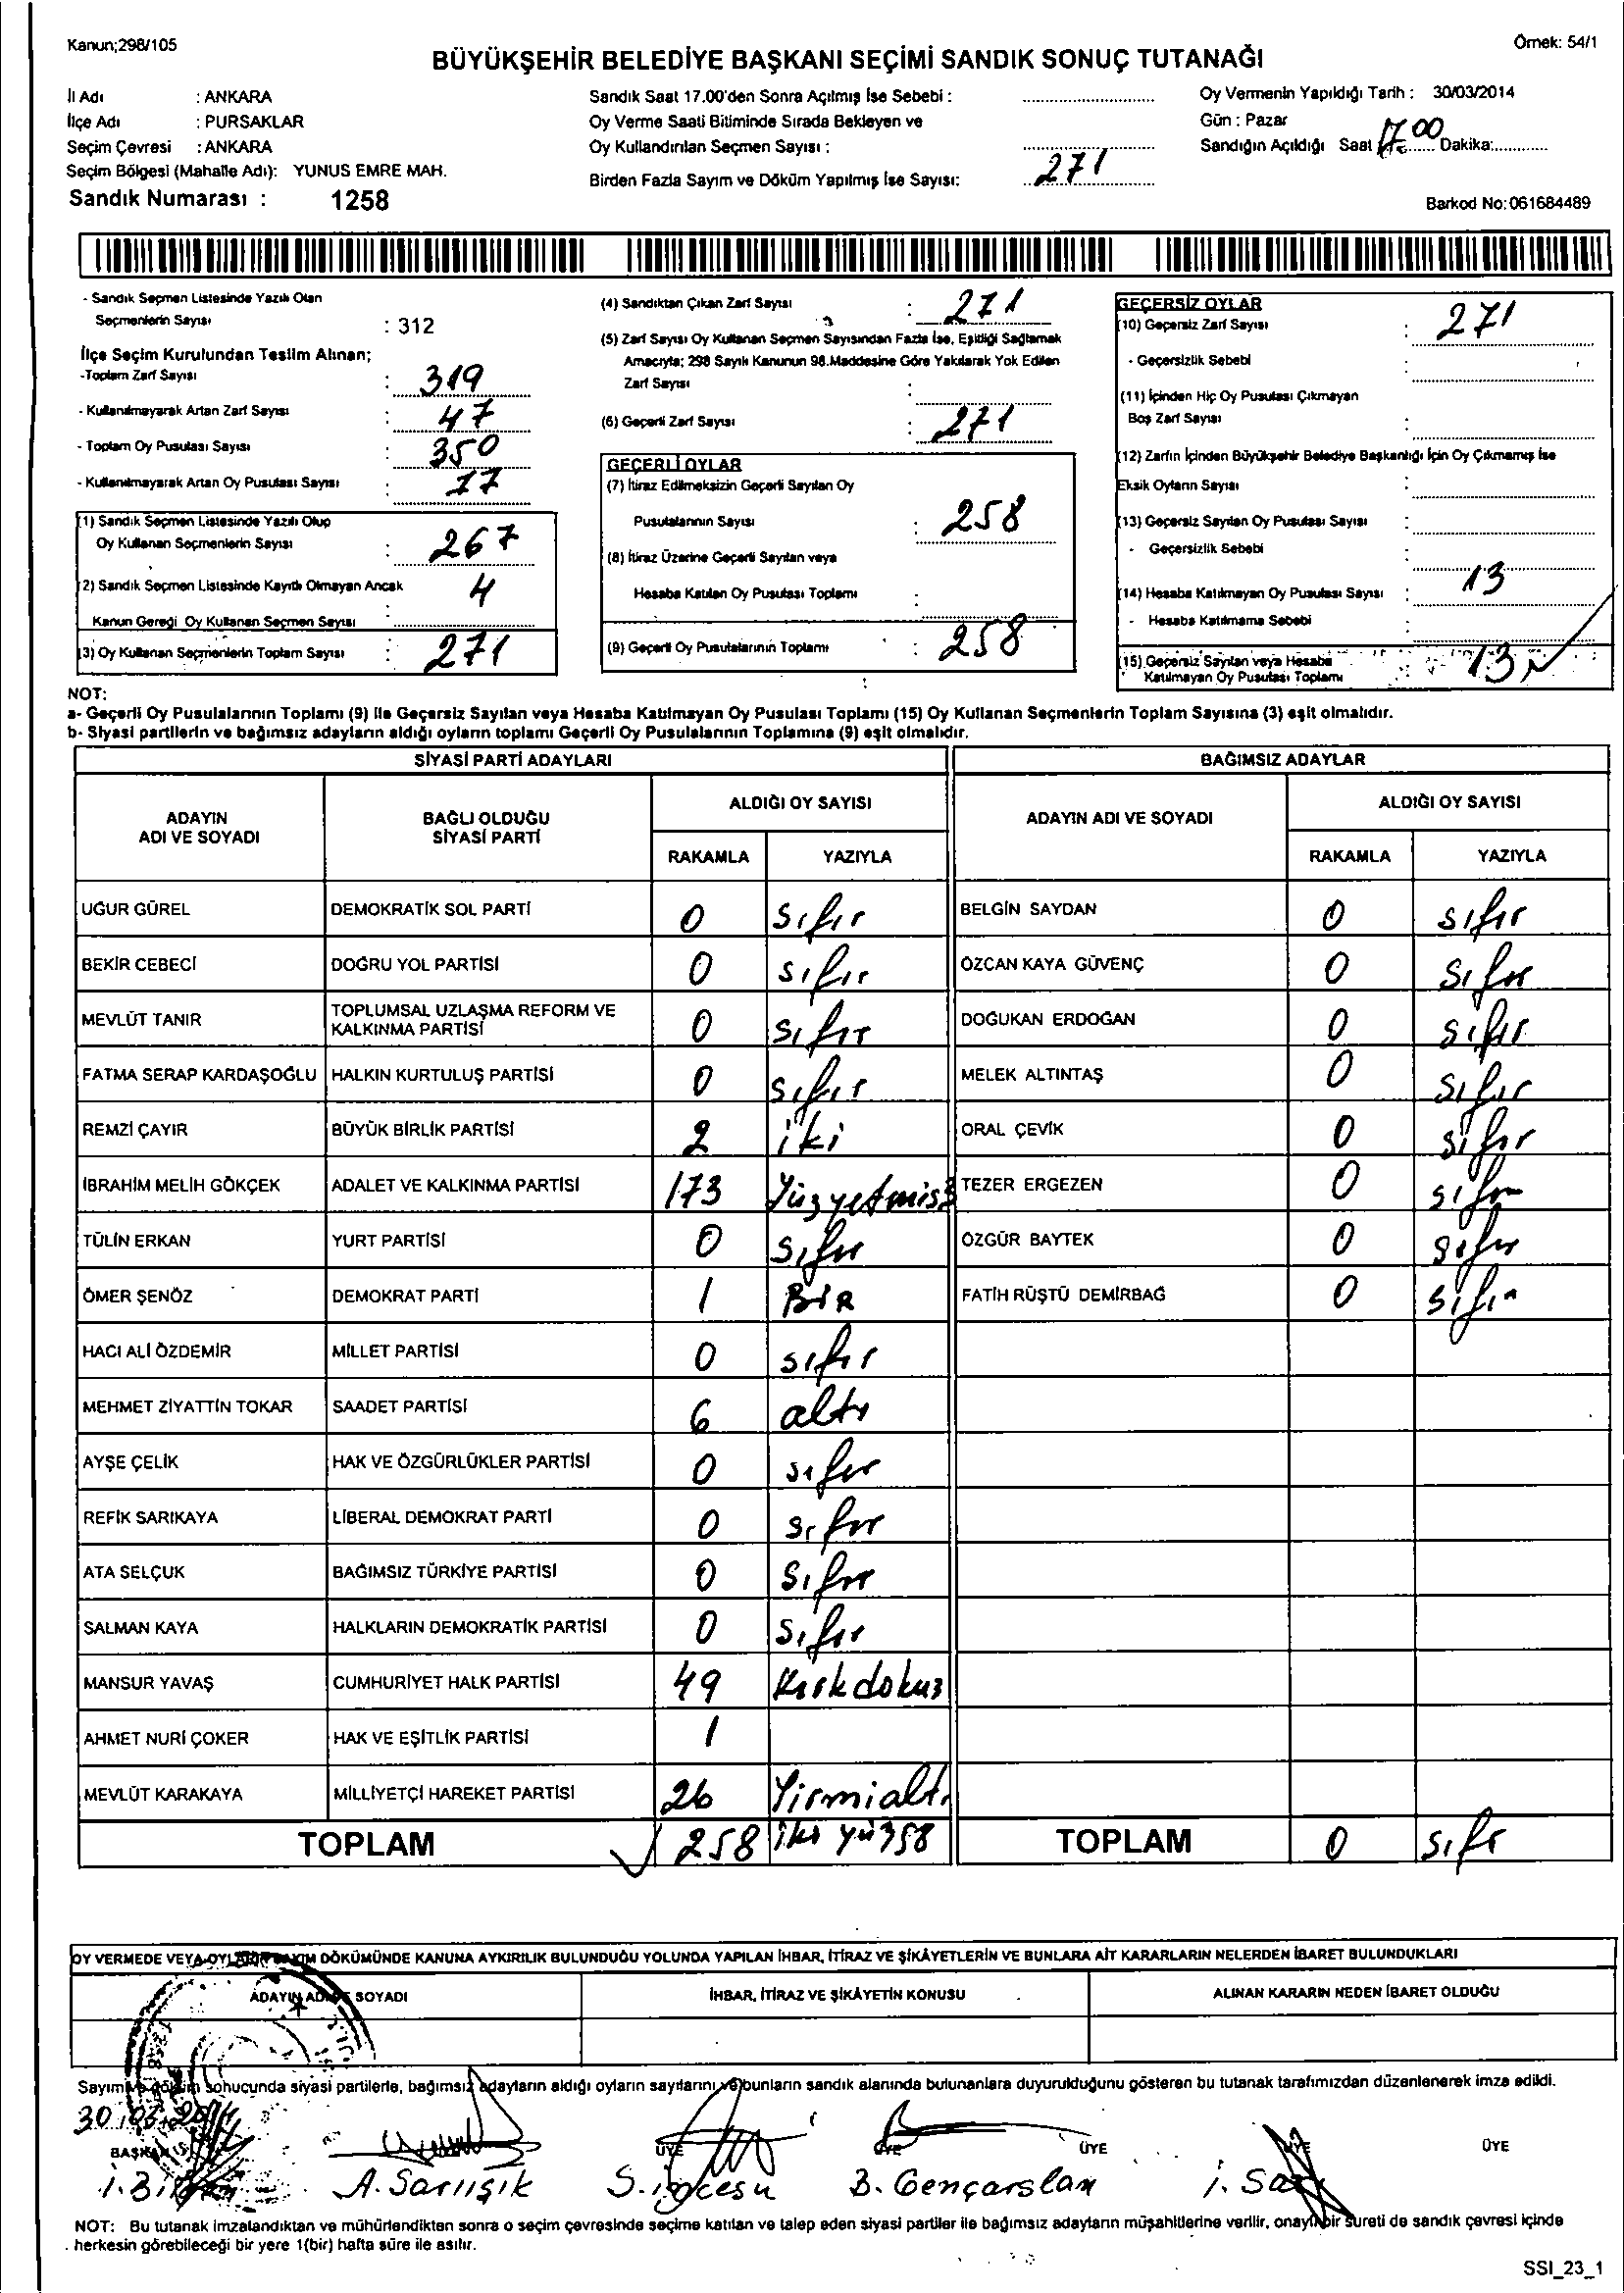 Kanun;298/105
Örnek: 54/1
BÜYÜKŞEHİR BELEDİYE BAŞKANI SEÇİMİ SANDIK SONUÇ TUTANAĞI
İl Adı : ANKARA
İlçe Adı : PURSAKLAR
Seçim Çevresi : ANKARA
Seçim Bölgesi (Mahalle Adı): YUNUS EMRE MAH.
Sandık Numarası : 1258
Sandık Saat 17.00'den Sonra Açılmış İse Sebebi :
Oy Verme Saati Bitiminde Sırada Bekleyen ve
Oy Kullandırılan Seçmen Sayısı :
Birden Fazla Sayım ve Döküm Yapılmış İse Sayısı: 271
Oy Vermenin Yapıldığı Tarih : 30/03/2014
Gün : Pazar
Sandığın Açıldığı Saat 17.00 Dakika:
Barkod No:061684489
- Sandık Seçmen Listesinde Yazılı Olan
Seçmenlerin Sayısı : 312
İlçe Seçim Kurulundan Teslim Alınan;
-Toplam Zarf Sayısı : 319
- Kullanılmayarak Artan Zarf Sayısı : 47
- Toplam Oy Pusulası Sayısı : 350
- Kullanılmayarak Artan Oy Pusulası Sayısı : 77
(1) Sandık Seçmen Listesinde Yazılı Olup
Oy Kullanan Seçmenlerin Sayısı : 267
(2) Sandık Seçmen Listesinde Kayıtlı Olmayan Ancak
Kanun Gereği Oy Kullanan Seçmen Sayısı : 4
(3) Oy Kullanan Seçmenlerin Toplam Sayısı : 271
(4) Sandıktan Çıkan Zarf Sayısı : 271
(5) Zarf Sayısı Oy Kullanan Seçmen Sayısından Fazla İse, Eşitliği Sağlamak
Amacıyla; 298 Sayılı Kanunun 98.Maddesine Göre Yakılarak Yok Edilen
Zarf Sayısı :
(6) Geçerli Zarf Sayısı : 271
GEÇERLİ OYLAR
(7) İtiraz Edilmeksizin Geçerli Sayılan Oy
Pusulalarının Sayısı : 258
(8) İtiraz Üzerine Geçerli Sayılan veya
Hesaba Katılan Oy Pusulası Toplamı :
(9) Geçerli Oy Pusulalarının Toplamı : 258
GEÇERSİZ OYLAR
(10) Geçersiz Zarf Sayısı : 271
- Geçersizlik Sebebi
(11) İçinden Hiç Oy Pusulası Çıkmayan
Boş Zarf Sayısı :
(12) Zarfın İçinden Büyükşehir Belediye Başkanlığı İçin Oy Çıkmamış İse
Eksik Oyların Sayısı :
(13) Geçersiz Sayılan Oy Pusulası Sayısı :
- Geçersizlik Sebebi :
(14) Hesaba Katılmayan Oy Pusulası Sayısı : 13
- Hesaba Katılmama Sebebi :
(15) Geçersiz Sayılan veya Hesaba
Katılmayan Oy Pusulası Toplamı : 13
NOT:
a- Geçerli Oy Pusulalarının Toplamı (9) ile Geçersiz Sayılan veya Hesaba Katılmayan Oy Pusulası Toplamı (15) Oy Kullanan Seçmenlerin Toplam Sayısına (3) eşit olmalıdır.
b- Siyasi partilerin ve bağımsız adayların aldığı oyların toplamı Geçerli Oy Pusulalarının Toplamına (9) eşit olmalıdır.
SİYASİ PARTİ ADAYLARI
ADAYIN ADI VE SOYADI BAĞLI OLDUĞU SİYASİ PARTİ ALDIĞI OY SAYISI
RAKAMLA YAZIYLA
UĞUR GÜREL DEMOKRATİK SOL PARTİ 0 sıfır
BEKİR CEBECİ DOĞRU YOL PARTİSİ 0 sıfır
MEVLÜT TANIR TOPLUMSAL UZLAŞMA REFORM VE KALKINMA PARTİSİ 0 sıfır
FATMA SERAP KARDAŞOĞLU HALKIN KURTULUŞ PARTİSİ 0 sıfır
REMZİ ÇAYIR BÜYÜK BİRLİK PARTİSİ 2 iki
İBRAHİM MELİH GÖKÇEK ADALET VE KALKINMA PARTİSİ 173 Yüzyetmiş3
TÜLİN ERKAN YURT PARTİSİ 0 sıfır
ÖMER ŞENÖZ DEMOKRAT PARTİ 1 BİR
HACI ALİ ÖZDEMİR MİLLET PARTİSİ 0 sıfır
MEHMET ZİYATTİN TOKAR SAADET PARTİSİ 6 altı
AYŞE ÇELİK HAK VE ÖZGÜRLÜKLER PARTİSİ 0 sıfır
REFİK SARIKAYA LİBERAL DEMOKRAT PARTİ 0 sıfır
ATA SELÇUK BAĞIMSIZ TÜRKİYE PARTİSİ 0 sıfır
SALMAN KAYA HALKLARIN DEMOKRATİK PARTİSİ 0 sıfır
MANSUR YAVAŞ CUMHURİYET HALK PARTİSİ 49 Kırkdokuz
AHMET NURİ ÇOKER HAK VE EŞİTLİK PARTİSİ 1
MEVLÜT KARAKAYA MİLLİYETÇİ HAREKET PARTİSİ 26 Yirmialtı
TOPLAM 258 iki yüz58
BAĞIMSIZ ADAYLAR
ADAYIN ADI VE SOYADI ALDIĞI OY SAYISI
RAKAMLA YAZIYLA
BELGİN SAYDAN 0 sıfır
ÖZCAN KAYA GÜVENÇ 0 sıfır
DOĞUKAN ERDOĞAN 0 sıfır
MELEK ALTINTAŞ 0 sıfır
ORAL ÇEVİK 0 sıfır
TEZER ERGEZEN 0 sıfır
ÖZGÜR BAYTEK 0 sıfır
FATİH RÜŞTÜ DEMİRBAĞ 0 sıfır
TOPLAM 0 sıfr
OY VERMEDE VEYA DÖKÜMÜNDE KANUNA AYKIRILIK BULUNDUĞU YOLUNDA YAPILAN İHBAR, İTİRAZ VE ŞİKÂYETLERİN VE BUNLARA AİT KARARLARIN NELERDEN İBARET BULUNDUKLARI
ADAYIN ADI VE SOYADI İHBAR, İTİRAZ VE ŞİKÂYETİN KONUSU ALINAN KARARIN NEDEN İBARET OLDUĞU
Sayım ve döküm sonucunda siyasi partilerle, bağımsız adayların aldığı oyların sayılarını ve bunların sandık alanında bulunanlara duyurulduğunu gösteren bu tutanak tarafımızdan düzenlenerek imza edildi.
30.03.2014
BAŞKAN ÜYE ÜYE ÜYE ÜYE ÜYE
A. Sarıışık B. Gençarslan
NOT: Bu tutanak imzalandıktan ve mühürlendikten sonra o seçim çevresinde seçime katılan ve talep eden siyasi partiler ile bağımsız adayların müşahitlerine verilir, onaylı bir sureti de sandık çevresi içinde
herkesin görebileceği bir yere 1(bir) hafta süre ile asılır.
SSI_23_1